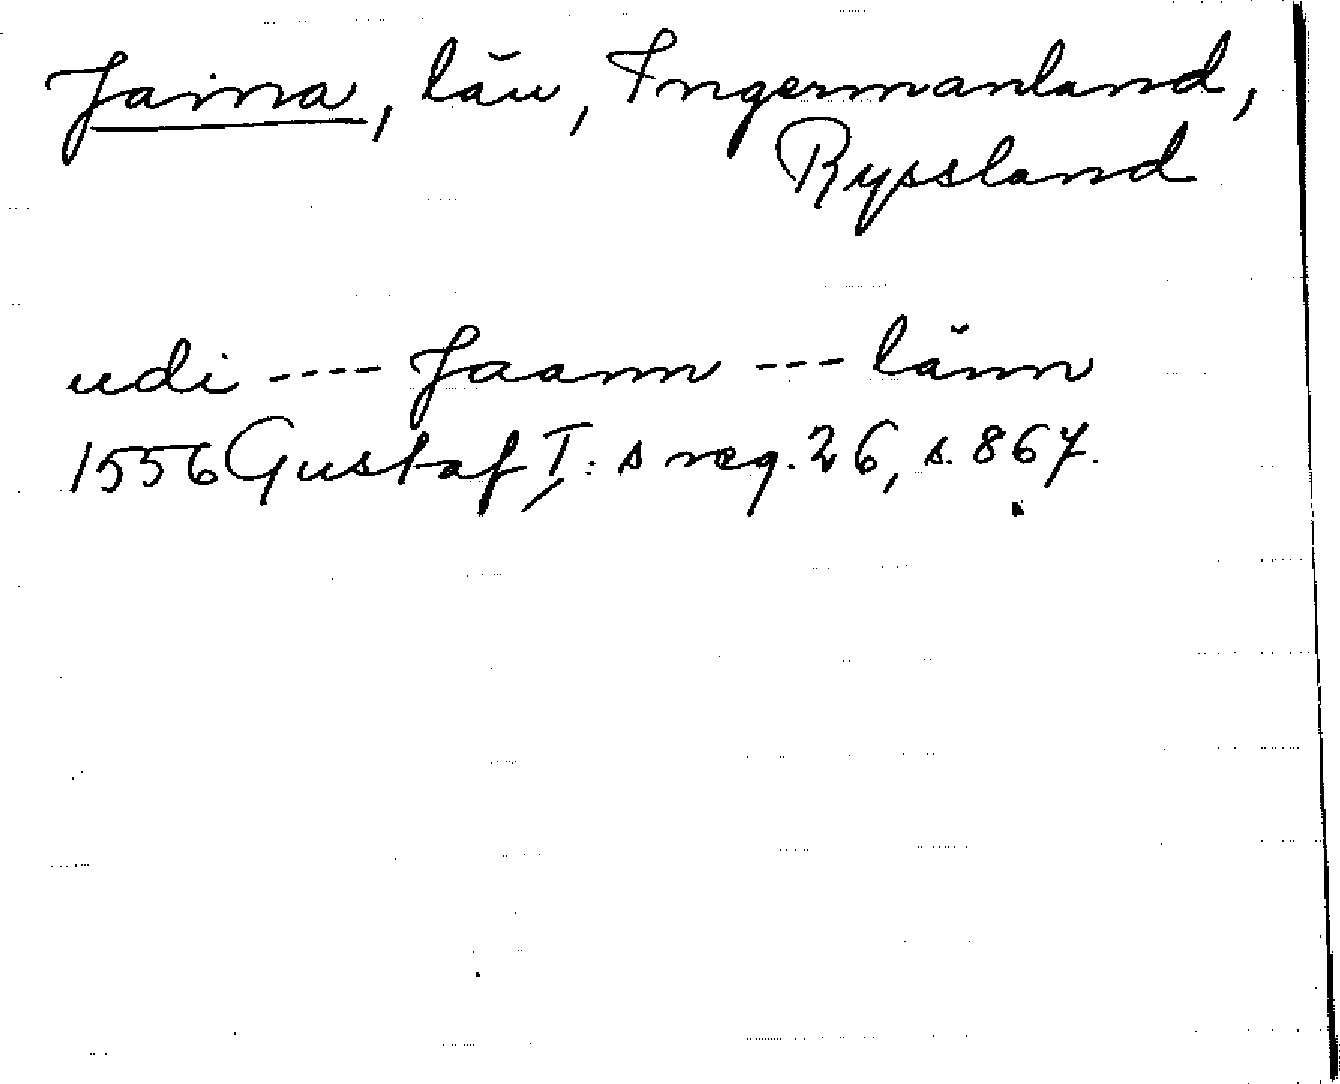 Jama, län, Ingermanland,
Ryssland
udi ---- Jaamn --- länn
1556 Gustaf I:s reg. 26, s. 867.